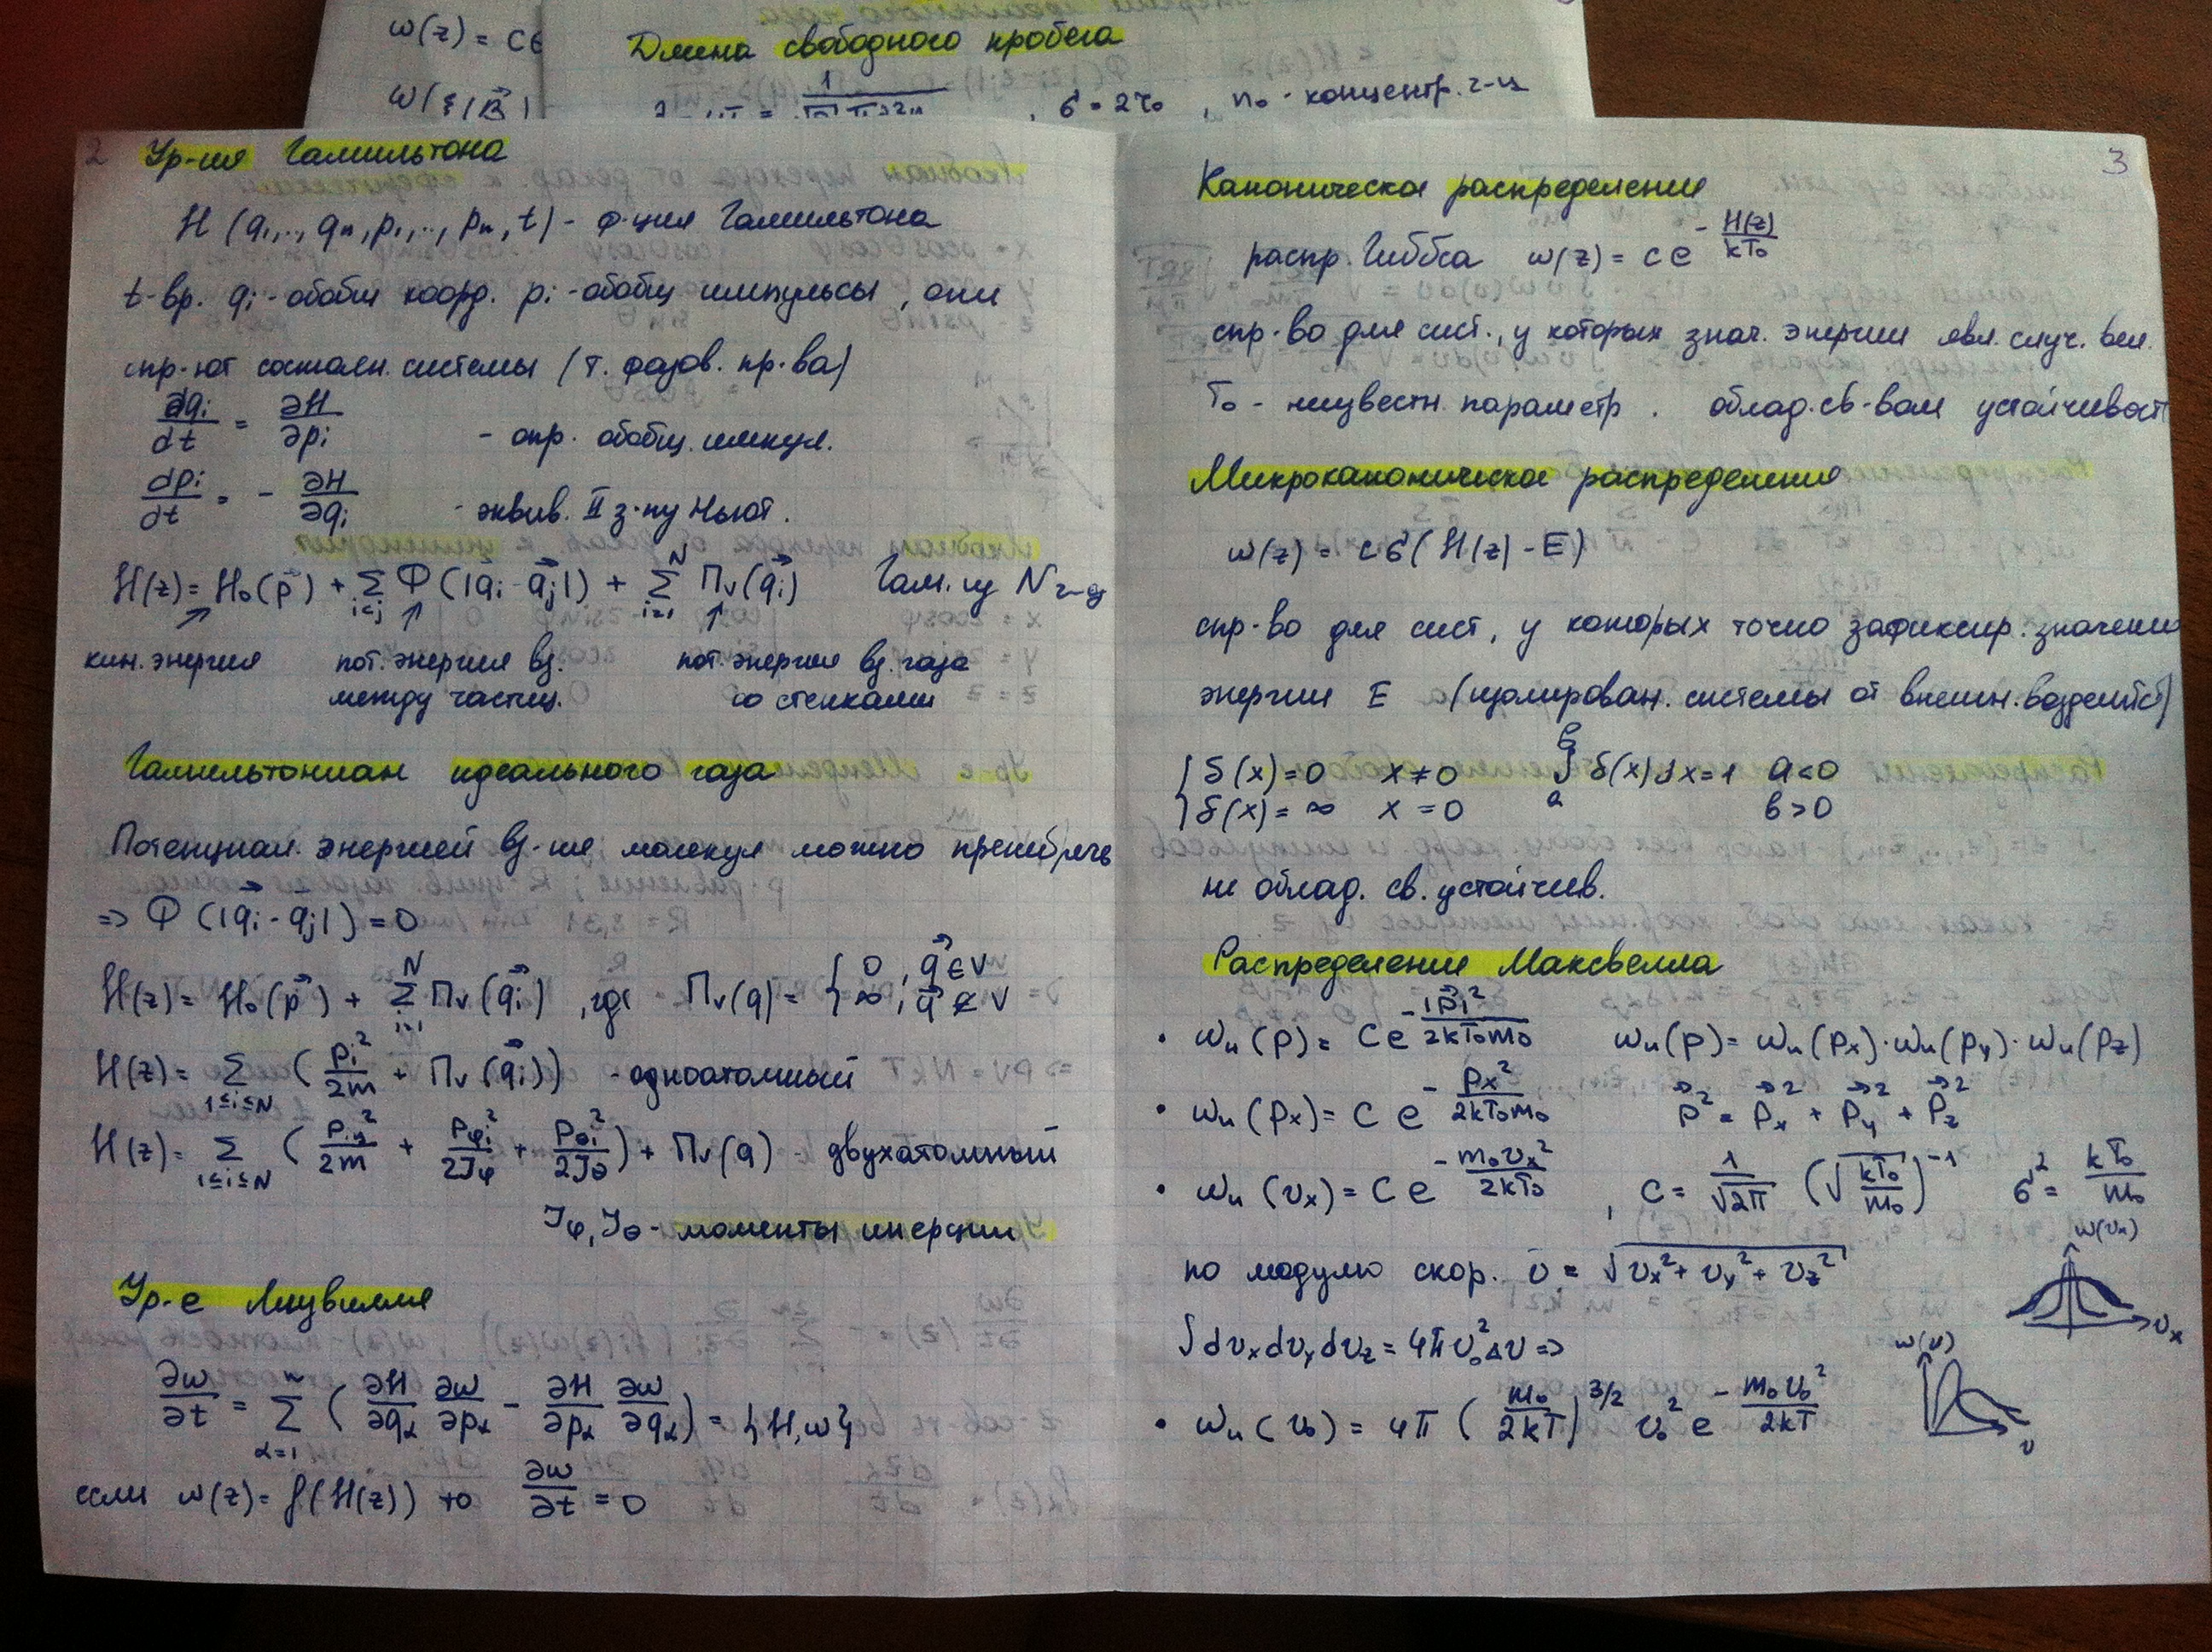 ω(z) = ce
ω(ξ|B⃗)
Длина свободного пробега
1
, σ = 2r₀ , n₀ - концентр. ч-ц
2
Ур-ия Гамильтона
H (q₁,.., qₙ, p₁,.., pₙ, t) - ф-ция Гамильтона
t-вр. qᵢ - обобщ коорд. pᵢ - обобщ импульсы, они
опр-ют состоян. системы (т. фазов. пр-ва)
∂qᵢ/dt = ∂H/∂pᵢ - опр. обобщ. импул.
dpᵢ/dt = - ∂H/∂qᵢ - эквив. II з-ну Ньют.
H(z) = H₀(p⃗) + Σ_{i<j} Φ(|q⃗ᵢ - q⃗ⱼ|) + Σ_{i=1}^{N} Πᵥ(q⃗ᵢ) Гам. из N ч-ц
кин. энергия пот. энергия вз. пот. энергия вз. газа
между частиц. со стенками
Гамильтониан идеального газа
Потенциал. энергией вз-ия молекул можно пренебречь
=> Φ(|q⃗ᵢ - q⃗ⱼ|) = 0
H(z) = H₀(p⃗) + Σ_{i=1}^{N} Πᵥ(q⃗ᵢ), где Πᵥ(q) = { 0, q⃗ ∈ V
∞, q⃗ ∉ V
H(z) = Σ_{1≤i≤N} (pᵢ²/2m + Πᵥ(q⃗ᵢ)) - одноатомный
H(z) = Σ_{1≤i≤N} (pᵢ²/2m + p_φᵢ²/2J_φ + p_θᵢ²/2J_θ) + Πᵥ(q) - двухатомный
J_φ, J_θ - моменты инерции
Ур-е Лиувилля
∂ω/∂t = Σ_{α=1}^{n} (∂H/∂q_α ∂ω/∂p_α - ∂H/∂p_α ∂ω/∂q_α) = {H, ω}
если ω(z) = f(H(z)) то ∂ω/∂t = 0
3
Каноническое распределение
распр. Гиббса ω(z) = c e^{-H(z)/kT₀}
спр-во для сист., у которых знач. энергии явл. случ. вел.
T₀ - неизвестн. параметр. облад. св-вом устойчивост
Микроканоническое распределение
ω(z) = cσ(H(z) - E)
спр-во для сист, у которых точно зафиксир. значение
энергии E (изолирован. системы от внешн. воздейст)
{ δ(x) = 0 x ≠ 0 ∫ₐᵇ δ(x)dx = 1 a < 0
δ(x) = ∞ x = 0 b > 0
не облад. св. устойчив.
Распределение Максвелла
• ωₙ(p) = C e^{-|p⃗ᵢ|²/2kT₀m₀} ωₙ(p) = ωₙ(pₓ)·ωₙ(p_y)·ωₙ(p_z)
• ωₙ(pₓ) = C e^{-pₓ²/2kT₀m₀} p⃗² = p⃗ₓ² + p⃗_y² + p⃗_z²
• ωₙ(vₓ) = C e^{-m₀vₓ²/2kT₀}, C = 1/√2π (√(kT₀/m₀))⁻¹ σ² = kT₀/m₀
ω(vₓ)
по модулю скор. v = √(vₓ² + v_y² + v_z²)
vₓ
∫dvₓdv_ydv_z = 4πv₀²Δv =>
ω(v)
• ωₙ(v₀) = 4π (m₀/2kT)^{3/2} v₀² e^{-m₀v₀²/2kT}
v